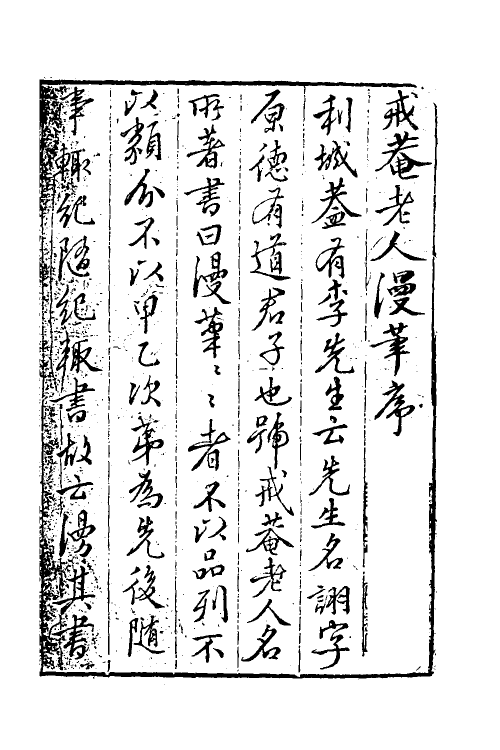 戒菴老人漫筆序
利城蓋有李先生云先生名詡字
原德有道君子也號戒菴老人名
所著書曰漫筆〻〻者不以品列不
以類分不以甲乙次第為先後隨
事輒紀隨紀輒書故云漫其書